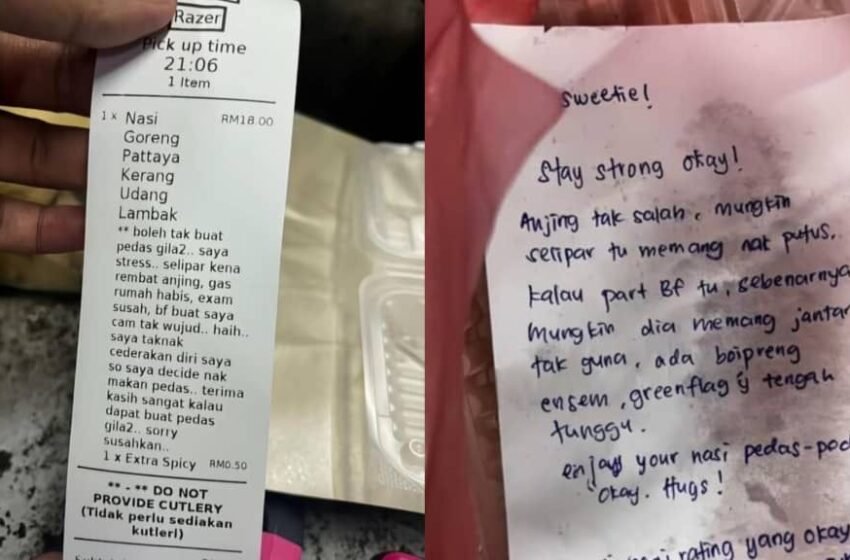 Razer
Pick up time
21:06
1 Item
1 x Nasi RM18.00
Goreng
Pattaya
Kerang
Udang
Lambak
** boleh tak buat
pedas gila2.. saya
stress.. selipar kena
rembat anjing, gas
rumah habis, exam
susah, bf buat saya
cam tak wujud.. haih..
saya taknak
cederakan diri saya
so saya decide nak
makan pedas.. terima
kasih sangat kalau
dapat buat pedas
gila2.. sorry
susahkan..
1 x Extra Spicy RM0.50
** - ** DO NOT
PROVIDE CUTLERY
(Tidak perlu sediakan
kutleri)
Sweetie!
Stay strong okay!
Anjing tak salah, mungkin
selipar tu memang nak putus.
kalau part Bf tu, sebenarnya
mungkin dia memang jantan
tak guna, ada boipreng
ensem, greenflag yg tengah
tunggu.
enjoy your nasi pedas-ped
okay. Hugs!
rating yang okay